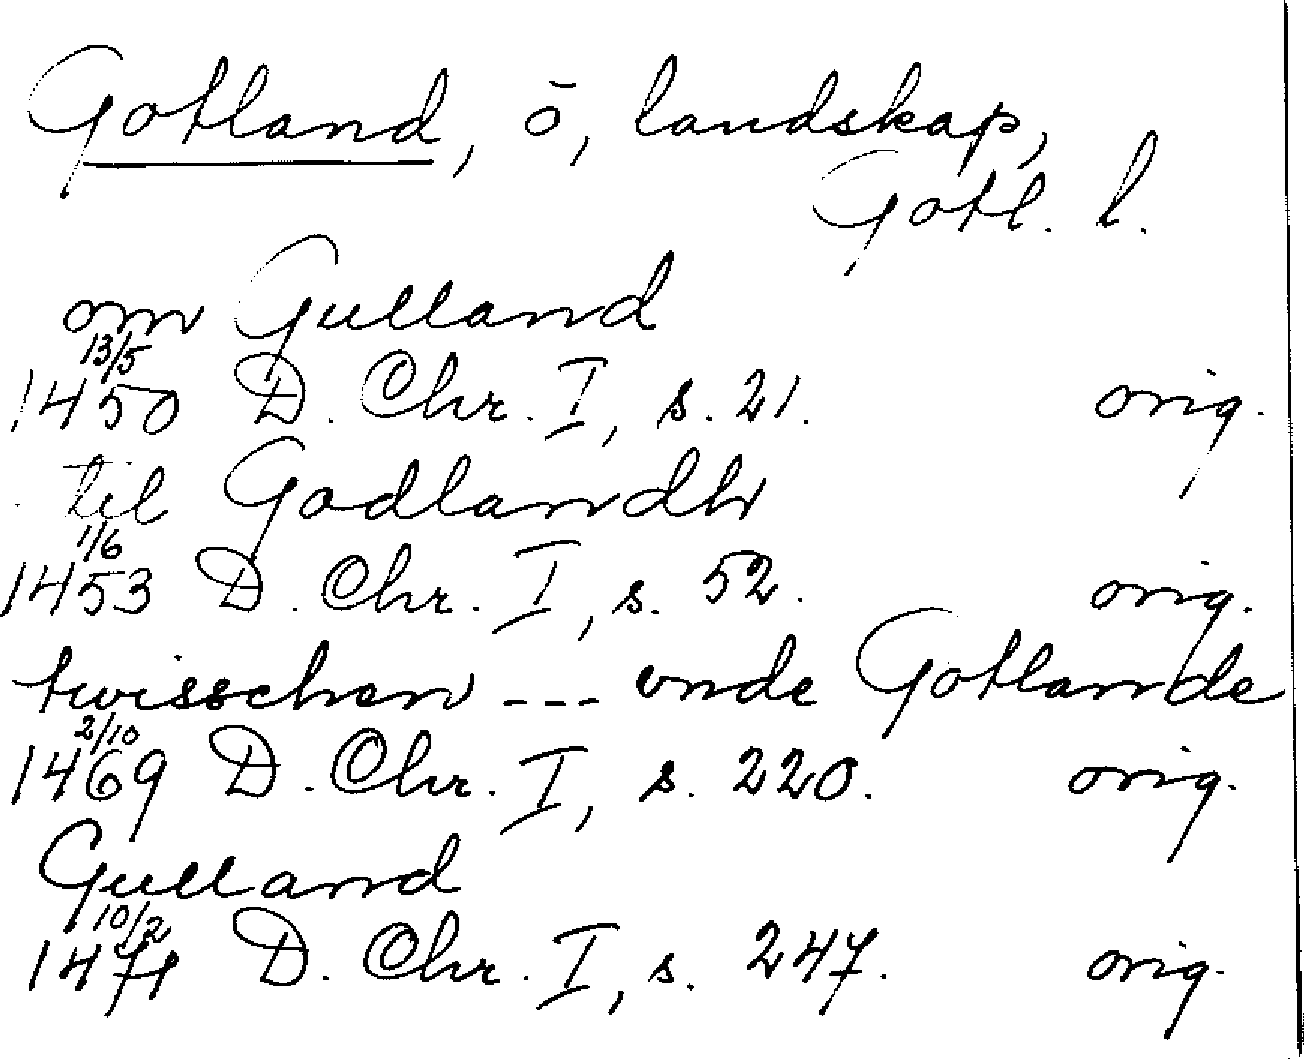 Gotland, ö, landskap,
Gotl. l.
om Gulland
13/5
1450 D. Chr. I, s. 21. orig.
til Godlandh
1/6
1453 D. Chr. I, s. 52. orig.
twisschen --- vnde Gotlande
2/10
1469 D. Chr. I, s. 220. orig.
Gulland
10/2
1471 D. Chr. I, s. 247. orig.